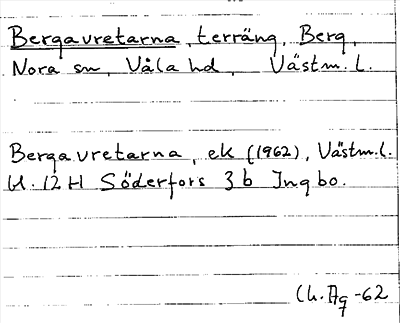 Bergavretarna, terräng, Berg,
Nora sn, Våla hd, Västm. l.
Bergavretarna, ek (1962), Västm. l.
12 H Söderfors 3 b Ingbo.
Ch. Ag -62